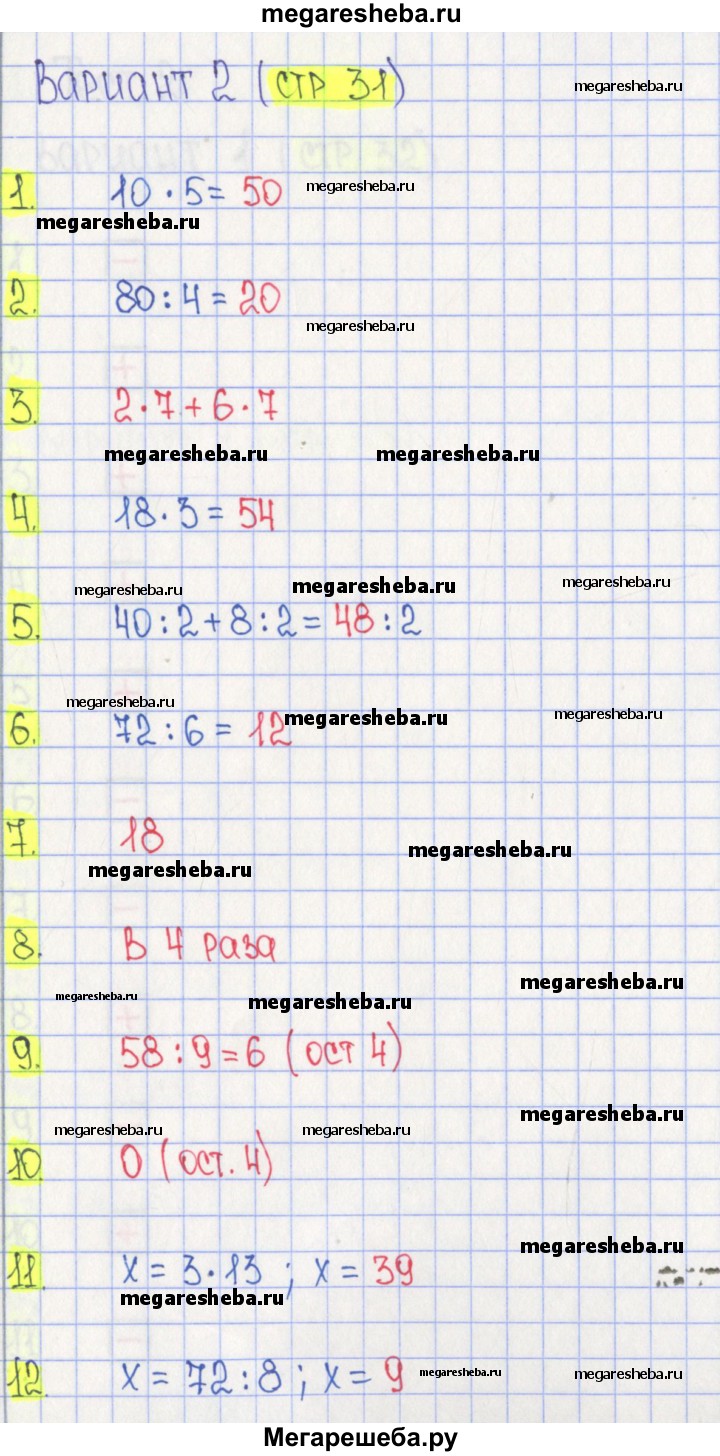 megaresheba.ru
Вариант 2 (стр 31)
megaresheba.ru
1. 10 · 5 = 50
megaresheba.ru
megaresheba.ru
2. 80 : 4 = 20
megaresheba.ru
3. 2 · 7 + 6 · 7
megaresheba.ru megaresheba.ru
4. 18 · 3 = 54
megaresheba.ru megaresheba.ru megaresheba.ru
5. 40 : 2 + 8 : 2 = 48 : 2
megaresheba.ru megaresheba.ru megaresheba.ru
6. 72 : 6 = 12
7. 18
megaresheba.ru
megaresheba.ru
8. В 4 раза
megaresheba.ru
megaresheba.ru megaresheba.ru
9. 58 : 9 = 6 (ост 4)
megaresheba.ru
megaresheba.ru megaresheba.ru
10. 0 (ост. 4)
megaresheba.ru
11. x = 3 · 13 ; x = 39
megaresheba.ru
12. x = 72 : 8 ; x = 9
megaresheba.ru megaresheba.ru
Мегарешеба.ру